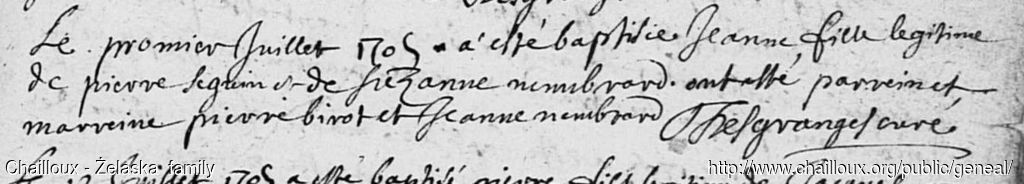 Le promier Juillet 1705 a esté baptisée Jeanne fille legitime
de pierre seguin & de suzanne nembrard. ont esté parrein et
marreine pierre birot et Jeanne nembrard Desgranges curé
Chailloux - Żelaska family
http://www.chailloux.org/public/geneal/
Juillet 1705 a esté baptisé pierre fils legitime de